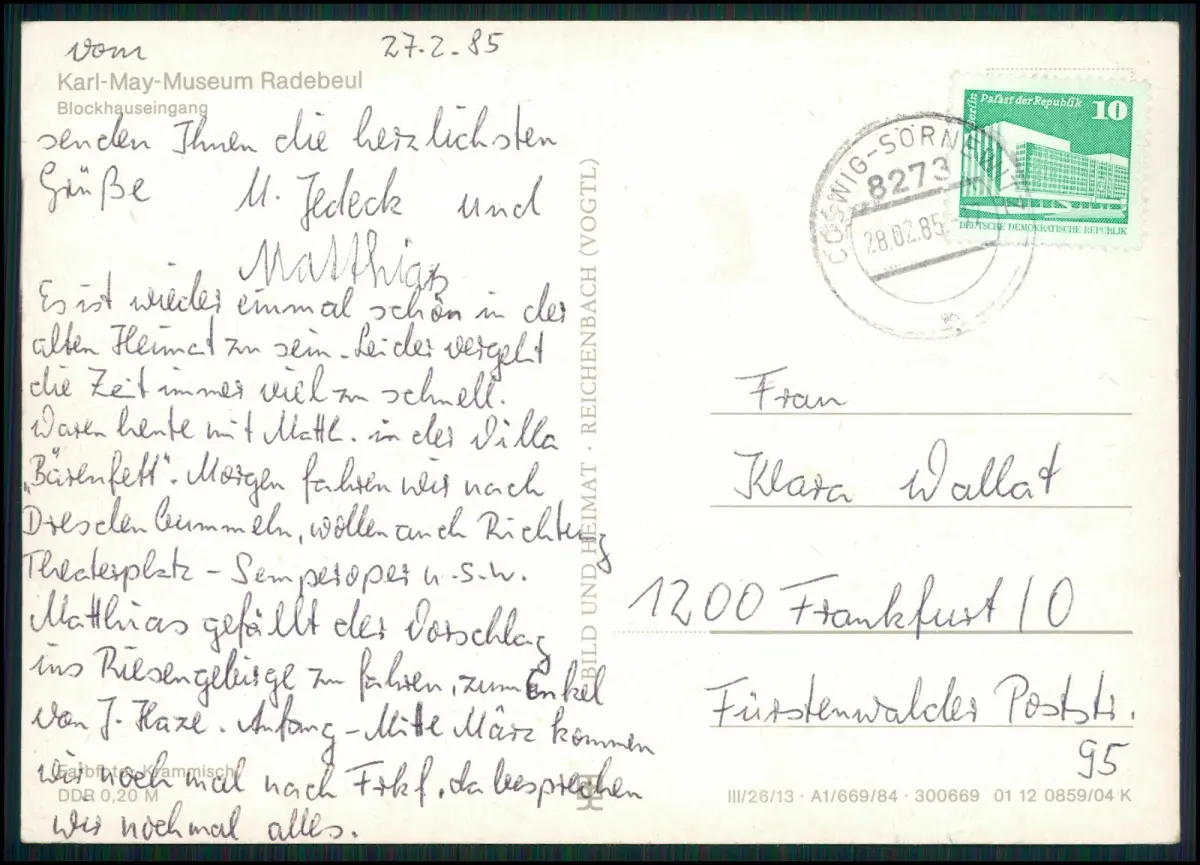 vom 27.2.85
Karl-May-Museum Radebeul
Blockhauseingang
senden Ihnen die herzlichsten
Grüße M. Jedeck und
Matthias
Es ist wieder einmal schön in der
alten Heimat zu sein. Leider vergeht
die Zeit immer viel zu schnell.
Waren heute mit Matth. in der Villa
„Bärenfett". Morgen fahren wir nach
Dresden bummeln, wollen auch Richtung
Theaterplatz – Semperoper u.s.w.
Matthias gefällt der Vorschlag
ins Riesengebirge zu fahren, zum Enkel
von J. Haze. Anfang – Mitte März kommen
wir noch mal nach Frkf. da besprechen
wir nochmal alles.
Farbfoto: Krammisch
DDR 0,20 M
BILD UND HEIMAT · REICHENBACH (VOGTL)
Berlin
Palast der Republik 10
DEUTSCHE DEMOKRATISCHE REPUBLIK
COSWIG-SÖRNEWITZ
8273
28.02.85
Frau
Klara Wallat
1200 Frankfurt/O
Fürstenwalder Poststr.
95
III/26/13 · A1/669/84 · 300669 01 12 0859/04 K